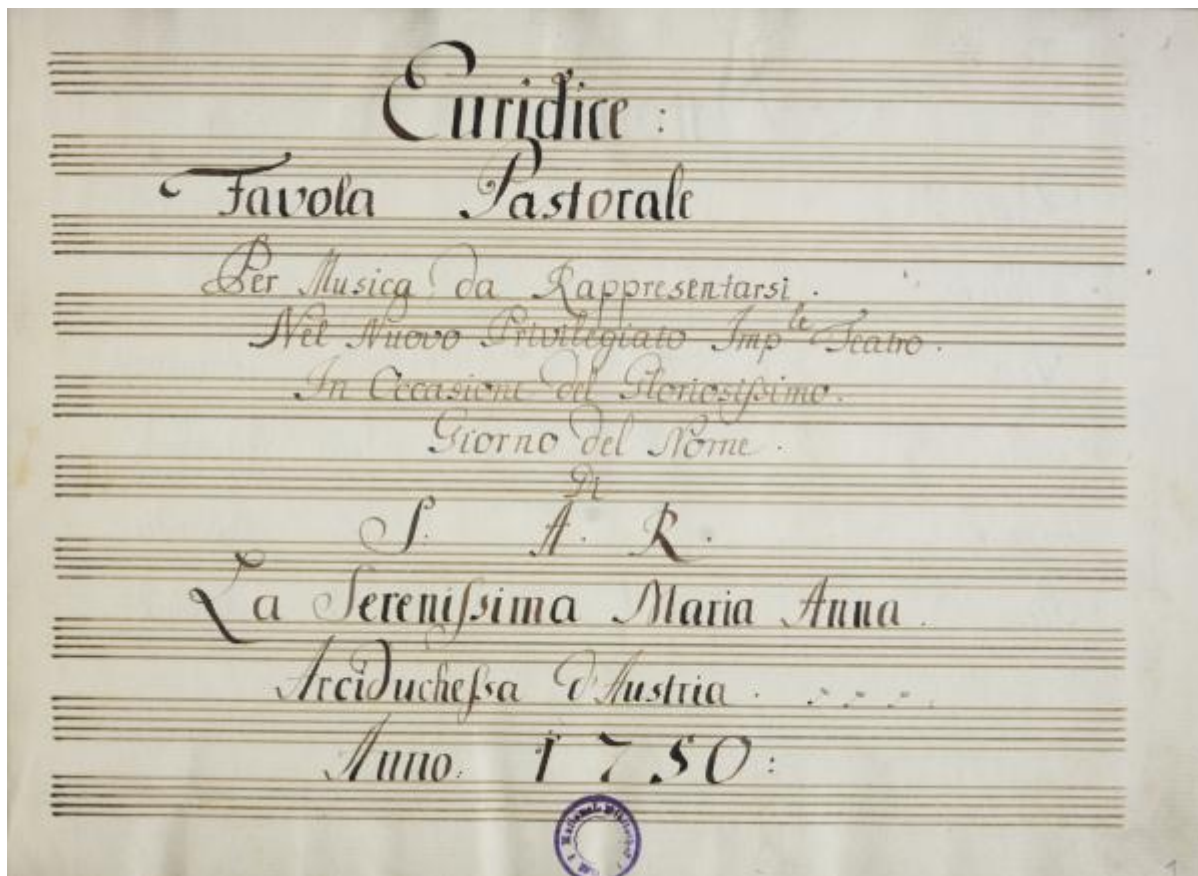 Euridice:
Favola Pastorale
Per Musica da Rappresentarsi.
Nel Nuovo Privilegiato Imp.le Teatro.
In Occasione del Gloriosissimo.
Giorno del Nome.
Di
S. A. R.
La Serenissima Maria Anna.
Arciduchessa d'Austria.
Anno. 1750: